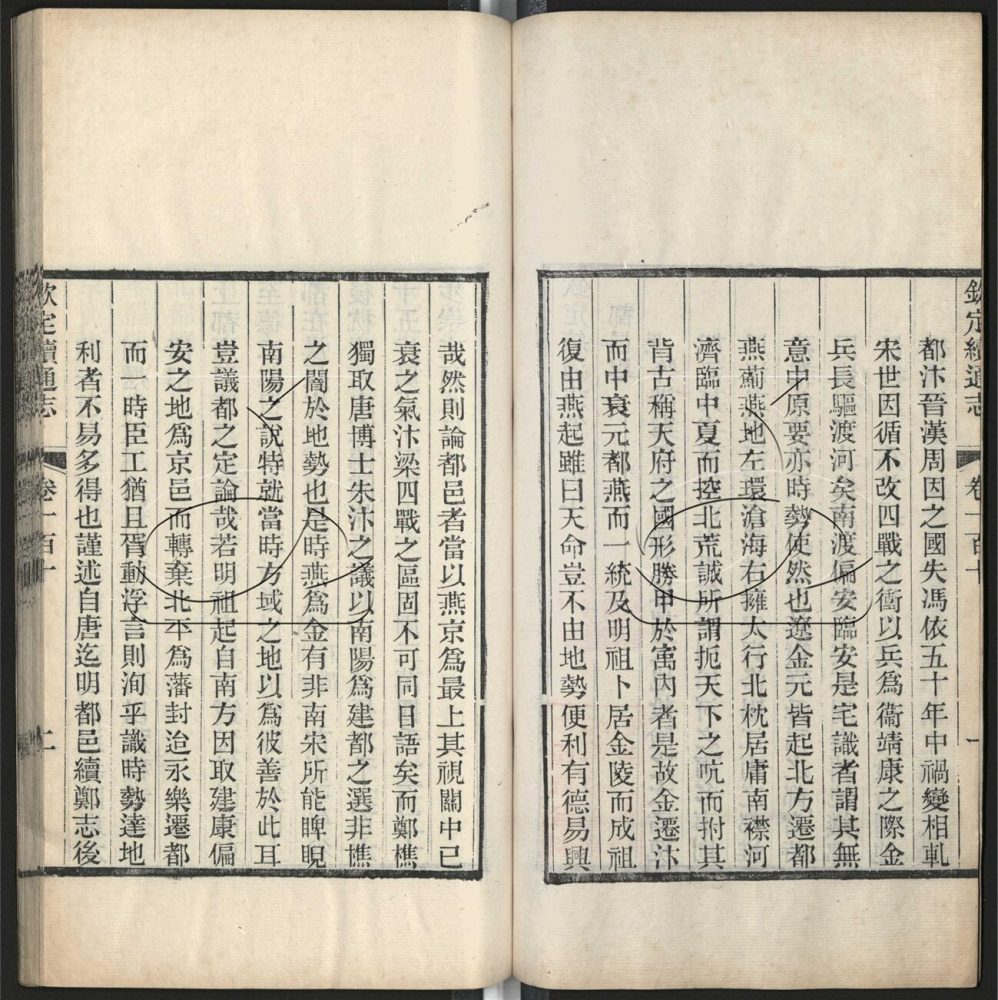 欽定續通志 卷一百十 一
都汴晉漢周因之國失馮依五十年中禍變相軋
宋世因循不改四戰之衝以兵爲衞靖康之際金
兵長驅渡河矣南渡偏安臨安是宅識者謂其無
意中原要亦時勢使然也遼金元皆起北方遷都
燕薊燕地左環滄海右擁太行北枕居庸南襟河
濟臨中夏而控北荒誠所謂扼天下之吭而拊其
背古稱天府之國形勝甲於寓內者是故金遷汴
而中衰元都燕而一統及明祖卜居金陵而成祖
復由燕起雖曰天命豈不由地勢便利有德易興
哉然則論都邑者當以燕京爲最上其視關中已
衰之氣汴梁四戰之區固不可同日語矣而鄭樵
獨取唐博士朱汴之議以南陽爲建都之選非樵
之闇於地勢也是時燕爲金有非南宋所能睥睨
南陽之說特就當時方域之地以爲彼善於此耳
豈議都之定論哉若明祖起自南方因取建康偏
安之地爲京邑而轉棄北平爲藩封迨永樂遷都
而一時臣工猶且胥動浮言則洵乎識時勢達地
利者不易多得也謹述自唐迄明都邑續鄭志後
欽定續通志 卷一百十 二